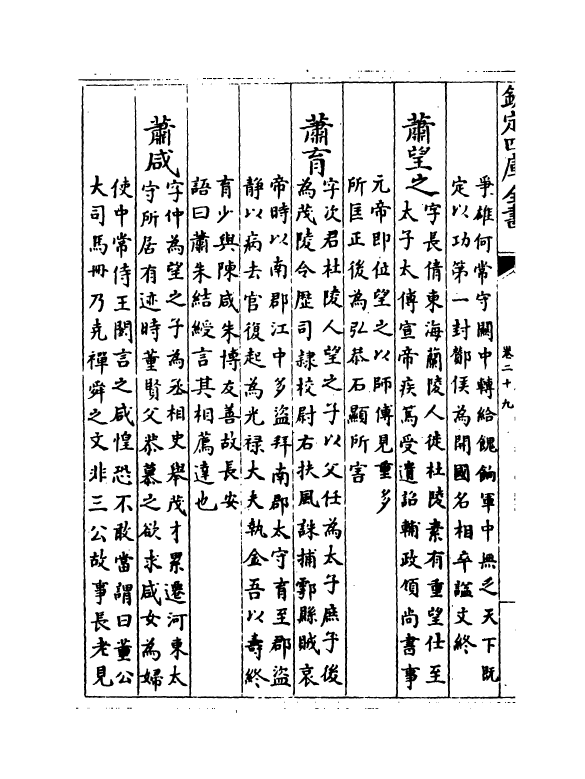 欽定四庫全書
卷二十九
爭雄何常守關中轉給餽餉軍中無乏天下既
定以功第一封酇侯為開國名相卒諡文終
蕭望之
字長倩東海蘭陵人徙杜陵素有重望仕至
太子太傅宣帝疾篤受遺詔輔政領尚書事
元帝即位望之以師傅見重多
所匡正後為弘恭石顯所害
蕭育
字次君杜陵人望之子以父任為太子庶子後
為茂陵令歷司隸校尉右扶風誅捕鄠縣賊哀
帝時以南郡江中多盜拜南郡太守育至郡盜
靜以病去官復起為光禄大夫執金吾以壽終
育少與陳咸朱博友善故長安
語曰蕭朱結綬言其相薦達也
蕭咸
字仲為望之子為丞相史舉茂才累遷河東太
守所居有迹時董賢父恭慕之欲求咸女為婦
使中常侍王閎言之咸惶恐不敢當謂曰董公
大司馬冊乃堯禪舜之文非三公故事長老見